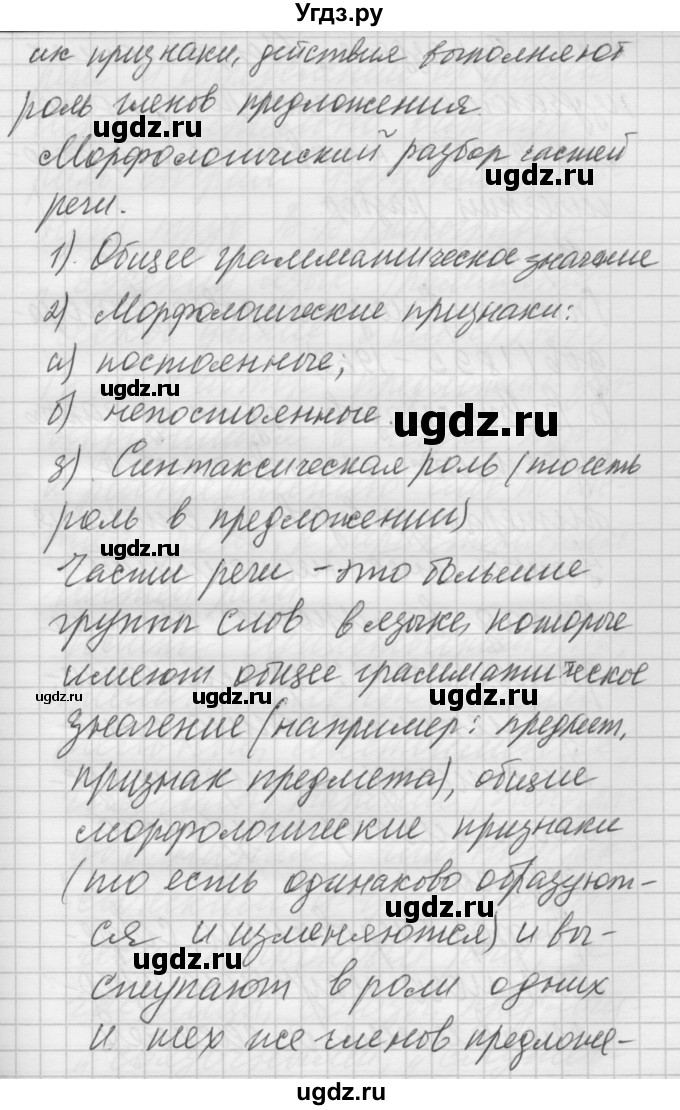 Угдз.ру
их признаки, действия выполняют
роль членов предложения.
ugdz.ru
ugdz.ru
Морфологический разбор частей
ugdz.ru
речи.
1). Общее грамматическое значение
2) Морфологические признаки:
а) постоянные;
ugdz.ru
б) непостоянные.
ugdz.ru
3). Синтаксическая роль (то есть
роль в предложении)
ugdz.ru
Части речи - это большие
группы слов в языке, которые
имеют общее грамматическое
ugdz.ru ugdz.ru ugdz.ru
значение (например: предмет,
признак предмета), общие
морфологические признаки
(то есть одинаково образуют-
ugdz.ru
ся и изменяются) и вы-
ugdz.ru
ступают в роли одних
и тех же членов предложе-
ugdz.ru